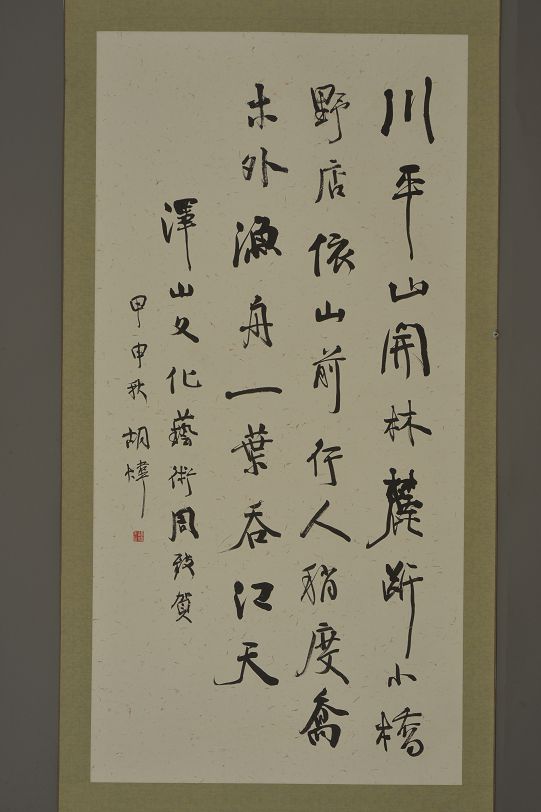 川平山開林麓斷小橋
野店依山前行人稍度喬
木外漁舟一葉吞江天
澤山文化藝術周致賀
甲申秋 胡